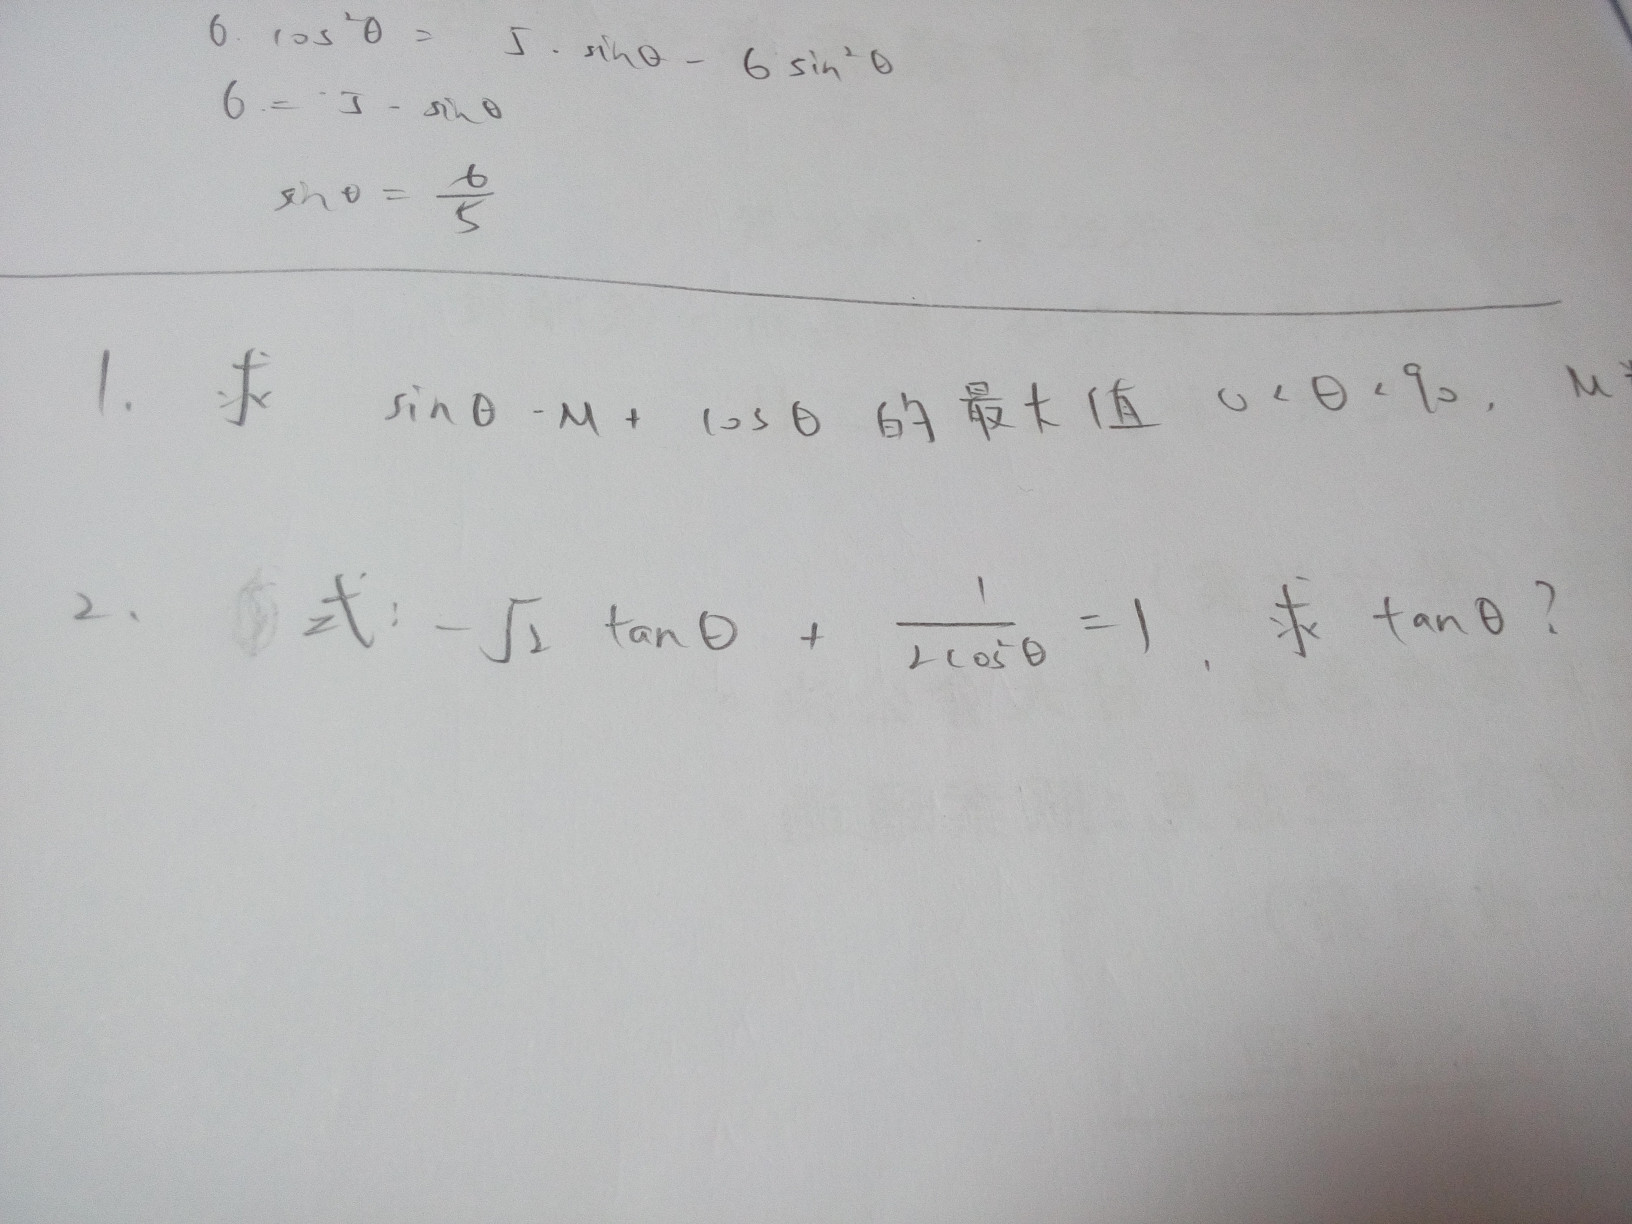 6. cos²θ = 5. sinθ - 6 sin²θ
6 = 5 - sinθ
sinθ = 6/5
1. 求 sinθ - M + cosθ 的最大值 0<θ<90, M
2. 式: -√2 tanθ + 1/2cos²θ = 1, 求 tanθ?